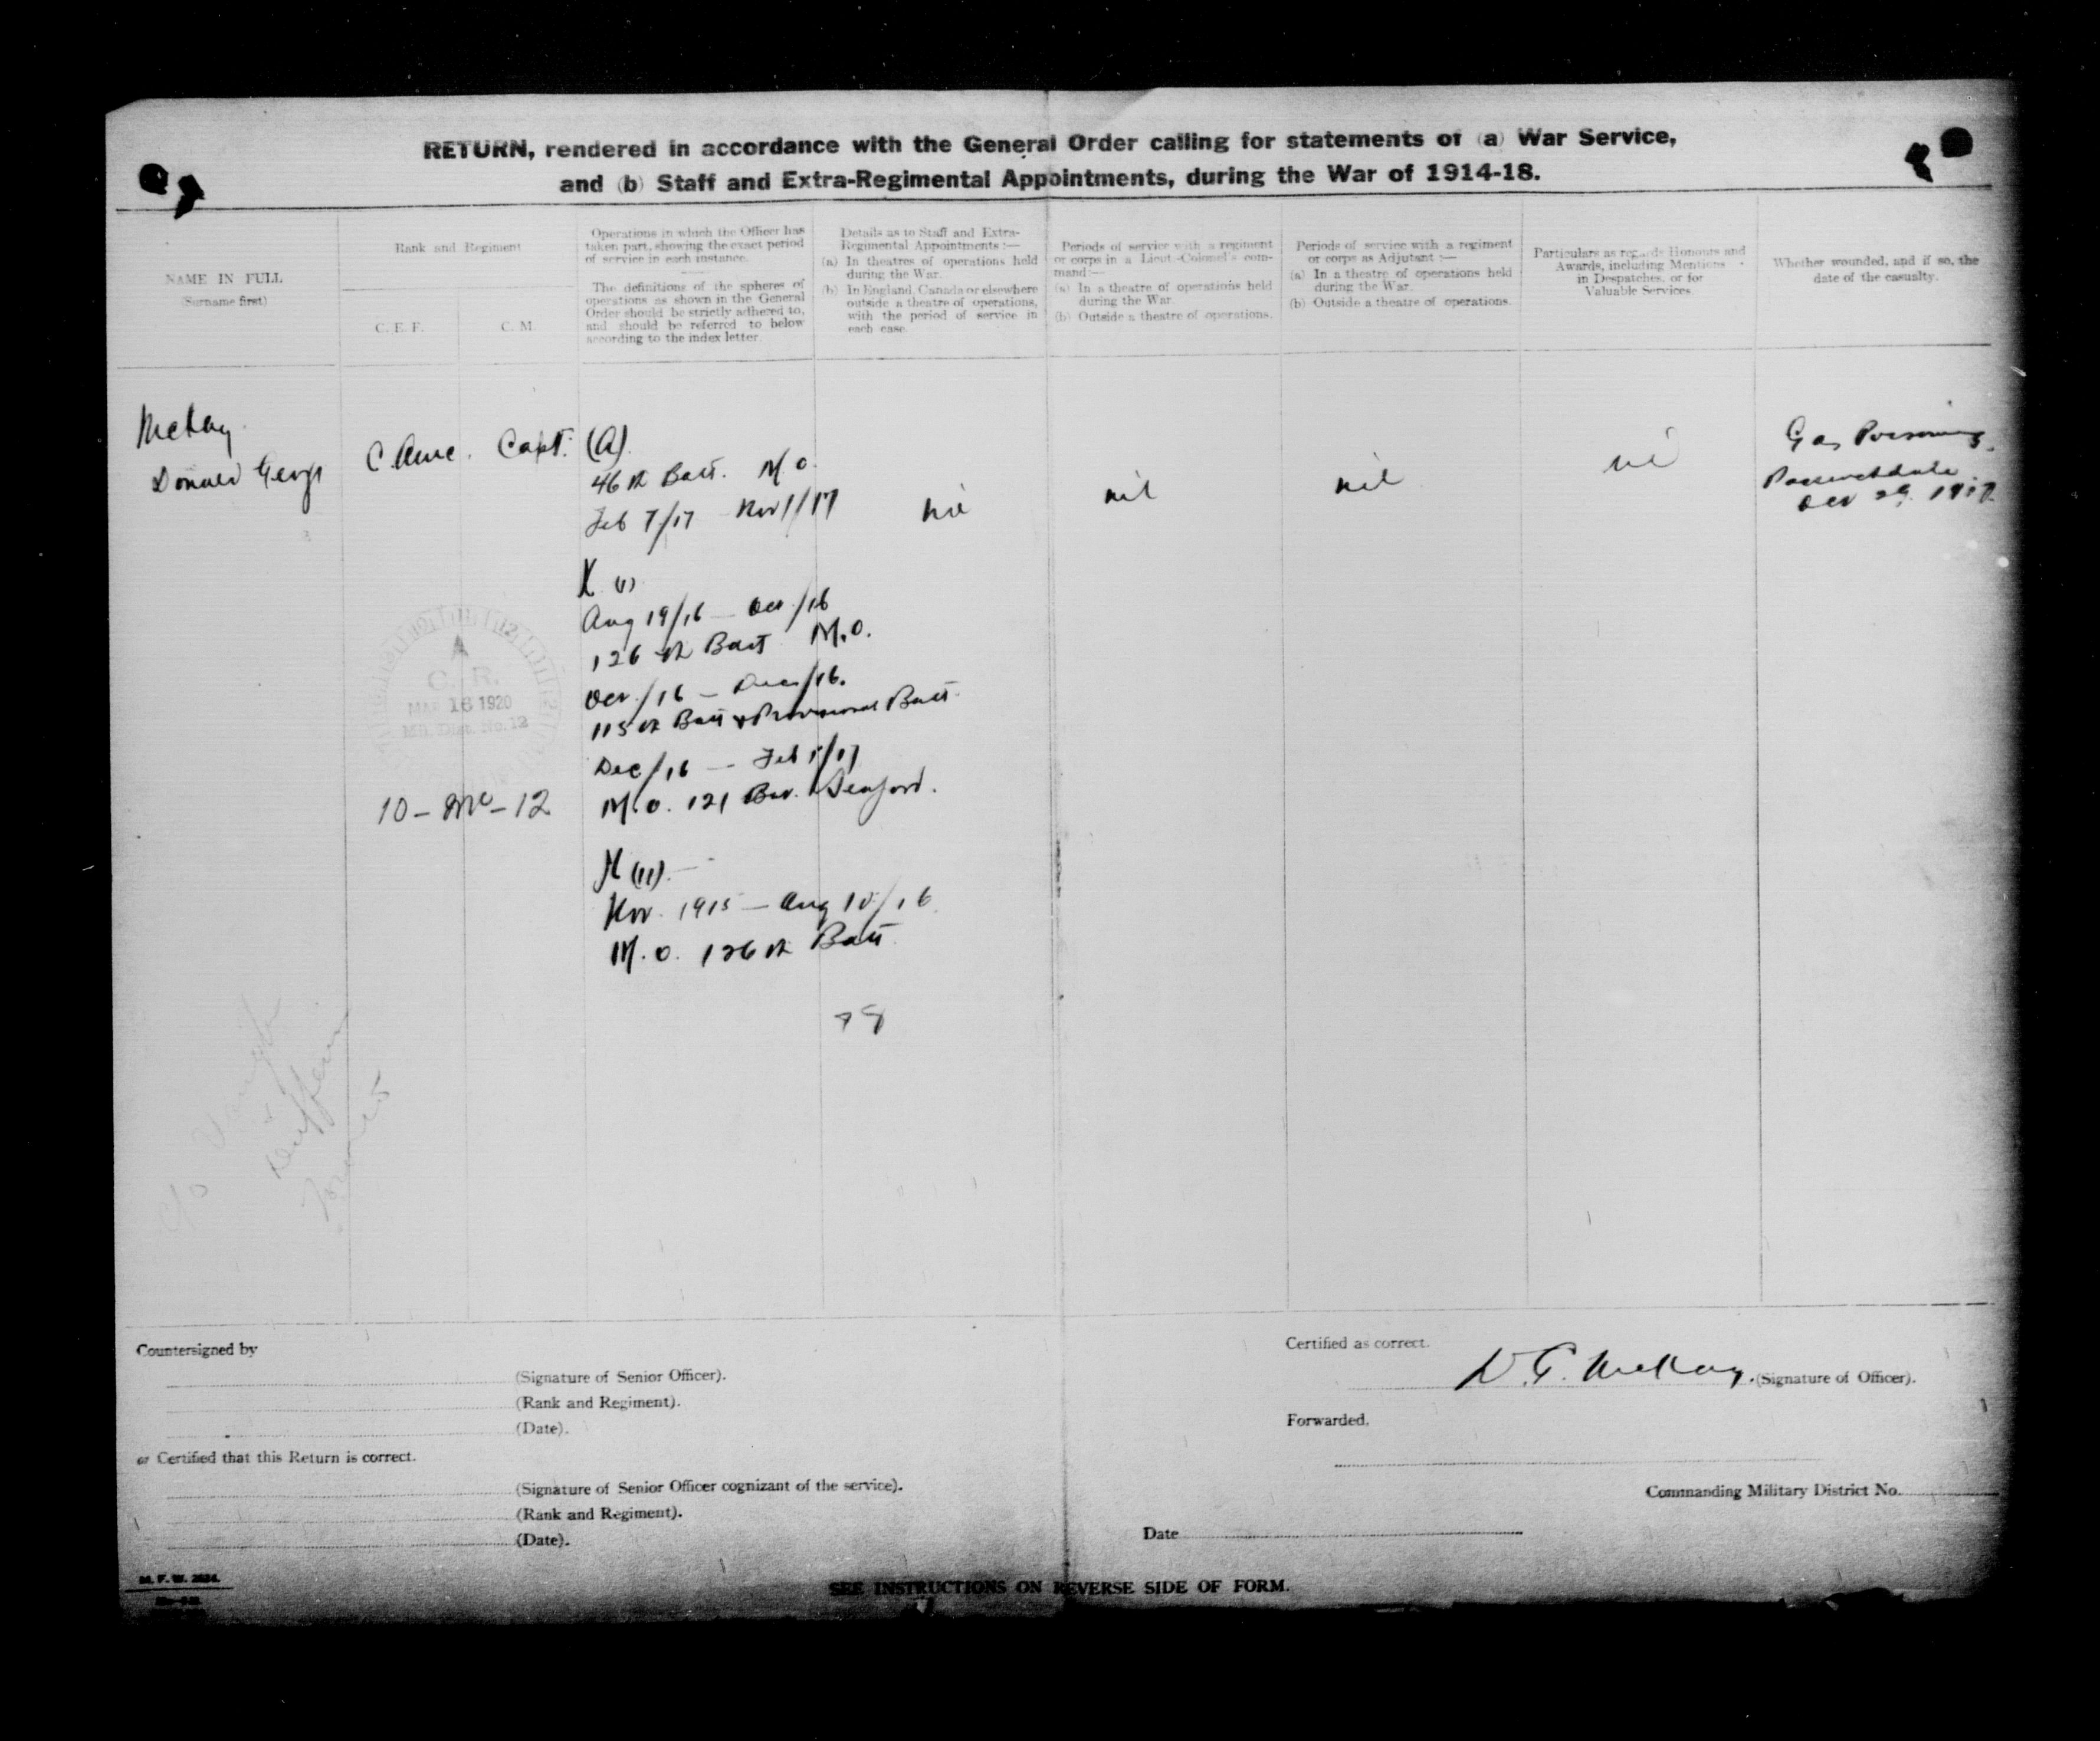 RETURN, rendered in accordance with the General Order calling for statements of (a) War Service,
and (b) Staff and Extra-Regimental Appointments, during the War of 1914-18.
NAME IN FULL
(Surname first)
Rank and Regiment
C. E. F.
C. M.
Operations in which the Officer has
taken part, showing the exact period
of service in each instance.
The definitions of the spheres of
operations as shown in the General
Order should be strictly adhered to,
and should be referred to below
according to the index letter.
Details as to Staff and Extra-
Regimental Appointments :—
(a) In theatres of operations held
during the War.
(b) In England, Canada or elsewhere
outside a theatre of operations,
with the period of service in
each case.
Periods of service with a regiment
or corps in a Lieut.-Colonel's com-
mand:—
(a) In a theatre of operations held
during the War.
(b) Outside a theatre of operations.
Periods of service with a regiment
or corps as Adjutant :—
(a) In a theatre of operations held
during the War.
(b) Outside a theatre of operations.
Particulars as regards Honours and
Awards, including Mentions
in Despatches, or for
Valuable Services.
Whether wounded, and if so, the
date of the casualty.
McKay
Donald George
C.A.M.C.
Capt.
(A)
46th Batt. M.O.
Feb 7/17 Nov 1/17
K (1)
Aug 19/16 — Oct/16
126th Batt M.O.
Oct/16 — Dec/16.
115th Batt & Provisional Batt
Dec/16 — Feb /17
M.O. 121 Bat. Seaford.
(11).—
Nov. 1915 — Aug 10/16
M.O. 126th Batt
nil
nil
nil
nil
Gas Poisoning
Passchendale
Oct 29 1917
C. R.
MAR 16 1920
Mil. Dist. No. 12
10 - Mc - 12
c/o Vaugh
&
Dufferin
Toronto
Countersigned by
(Signature of Senior Officer).
(Rank and Regiment).
(Date).
or Certified that this Return is correct.
(Signature of Senior Officer cognizant of the service).
(Rank and Regiment).
(Date).
Certified as correct.
D. G. McKay. (Signature of Officer).
Forwarded.
Commanding Military District No.
Date
M. F. W. 2624.
SEE INSTRUCTIONS ON REVERSE SIDE OF FORM.